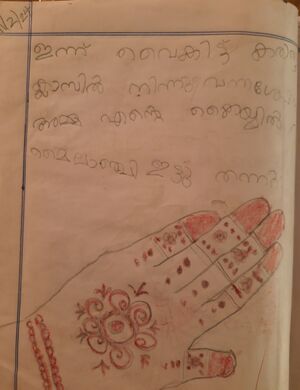 11/2/24
ഇന്ന് വൈകിട്ട്
ക്ലാസിൽ നിന്നുവന്നശേഷം
അമ്മ എന്റെ കൈയ്യിൽ
മൈലാഞ്ചി ഇട്ടു തന്നു